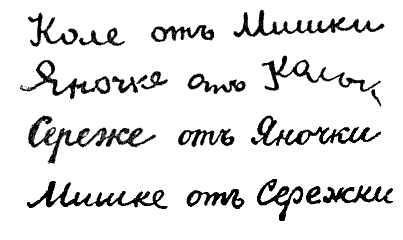 Коле отъ Мишки
Яночке отъ Кольки
Сереже отъ Яночки
Мишке отъ Сережки